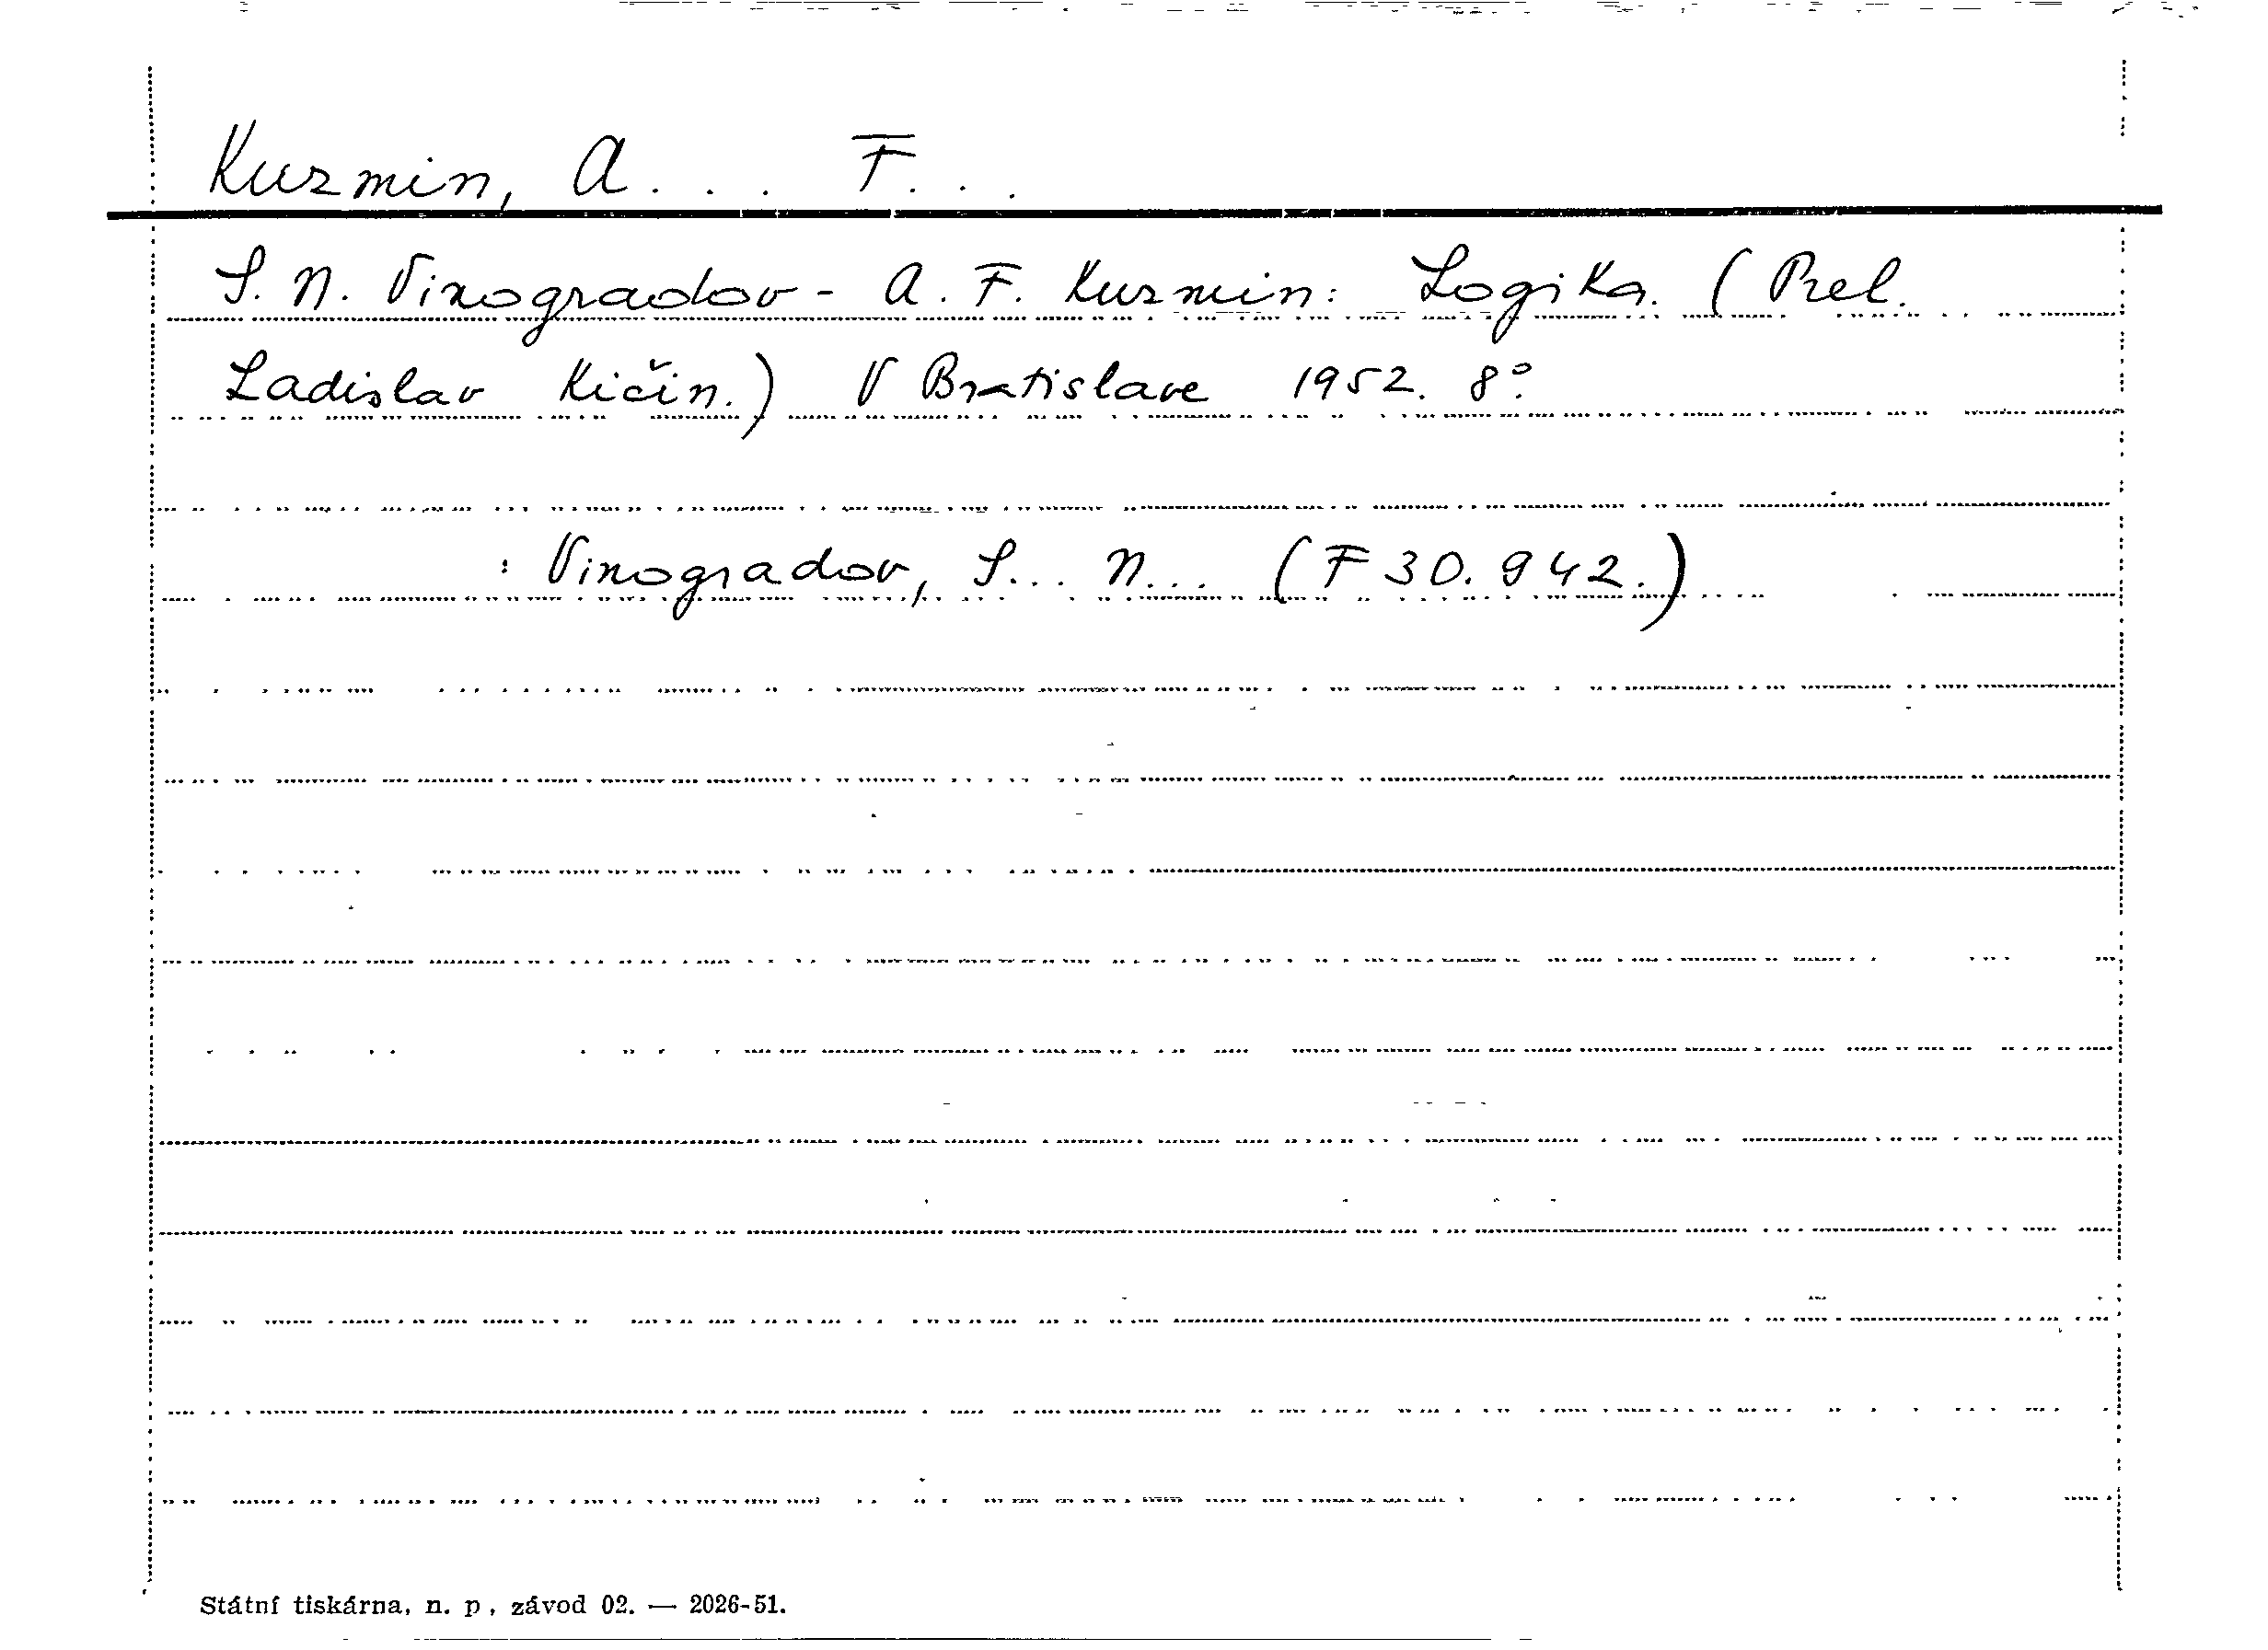 Kuzmin, A... F...
S. N. Vinogradov - A. F. Kuzmin: Logika. (Prel.
Ladislav Kičin.) V Bratislave 1952. 8°.
: Vinogradov, S... N... (F 30.942.)
Státní tiskárna, n. p., závod 02. — 2026-51.